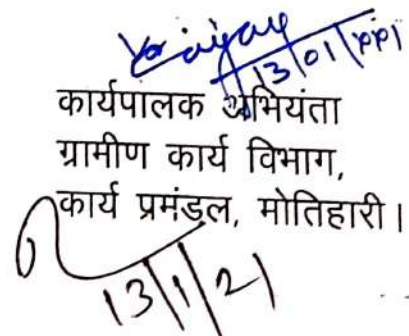 13/01/2021
कार्यपालक अभियंता
ग्रामीण कार्य विभाग,
कार्य प्रमंडल, मोतिहारी।
13/1/21